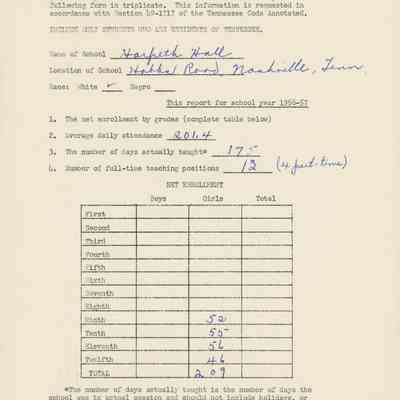 following form in triplicate. This information is requested in
accordance with Section 49-1717 of the Tennessee Code Annotated.
INCLUDE ONLY STUDENTS WHO ARE RESIDENTS OF TENNESSEE.
Name of School Harpeth Hall
Location of School Hobbs Road, Nashville, Tenn.
Race: White ✓ Negro
This report for school year 1956-57
1. The net enrollment by grades (complete table below)
2. Average daily attendance 201.4
3. The number of days actually taught* 175
4. Number of full-time teaching positions 13 (4 part-time)
NET ENROLLMENT
Boys Girls Total
First
Second
Third
Fourth
Fifth
Sixth
Seventh
Eighth
Ninth 52
Tenth 55
Eleventh 56
Twelfth 46
TOTAL 209
*The number of days actually taught is the number of days the
school was in actual session and should not include holidays, or